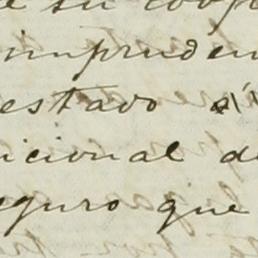 e su coop
imprudenc
estado si
icional de
eguro que